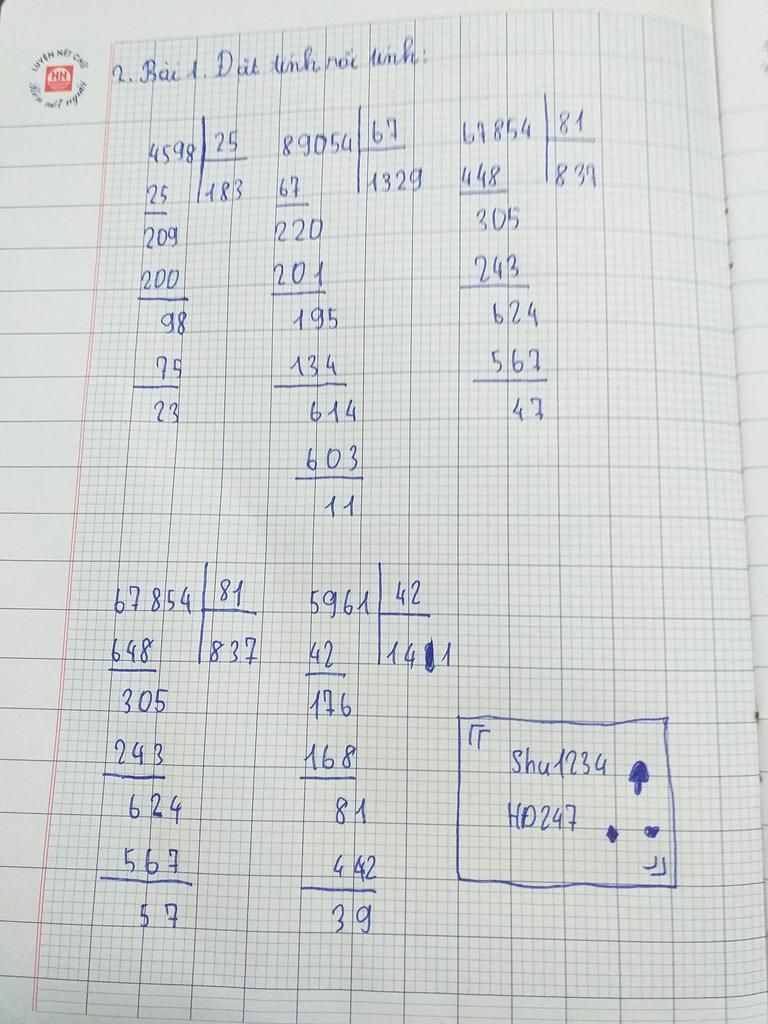 LUYỆN NÉT CHỮ
HN
Rèn nết người
2. Bài 1. Đặt tính rồi tính:
4598 25
25 183
209
200
98
75
23
89054 67
67 1329
220
201
195
134
614
603
11
67854 81
448 837
305
243
624
567
47
67854 81
648 837
305
243
624
567
57
5961 42
42 141
176
168
81
442
39
Shu1234
HD247